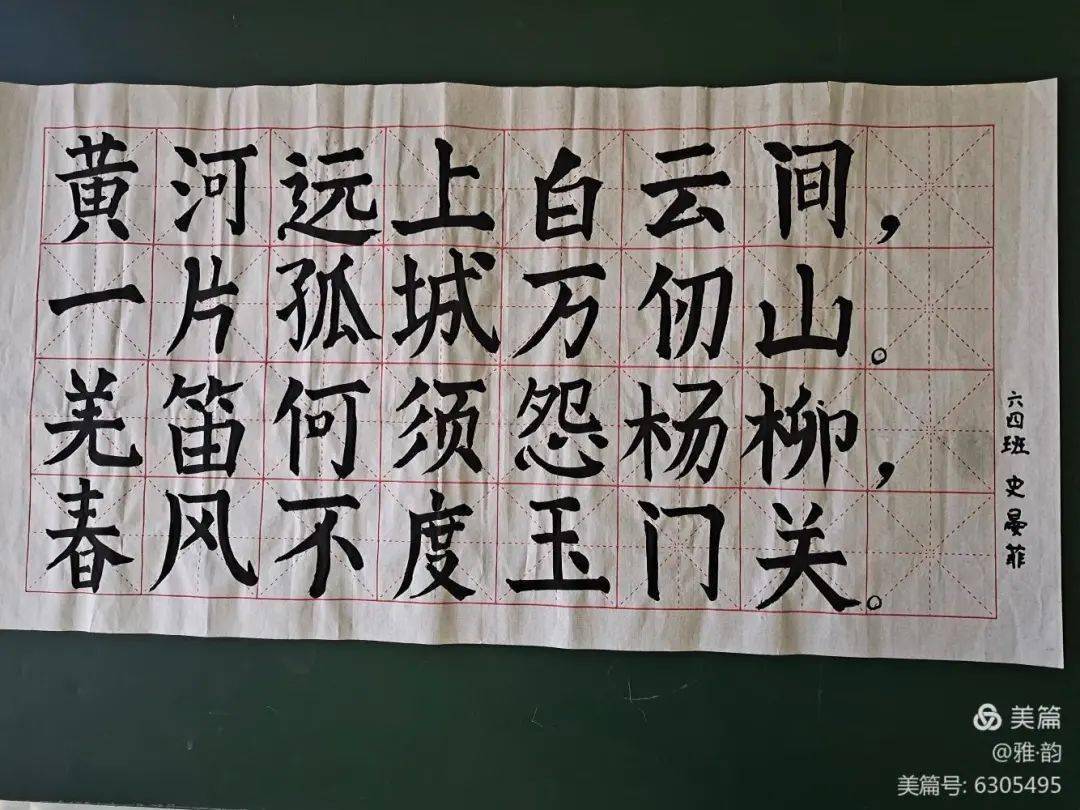 黄河远上白云间，
一片孤城万仞山。
羌笛何须怨杨柳，
春风不度玉门关。
六四班 史晏菲
美篇
@雅·韵
美篇号: 6305495